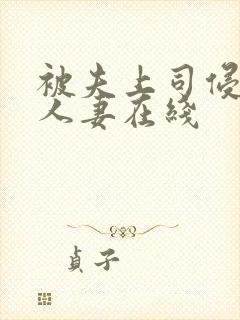 被夫上司侵
人妻在线
貞子